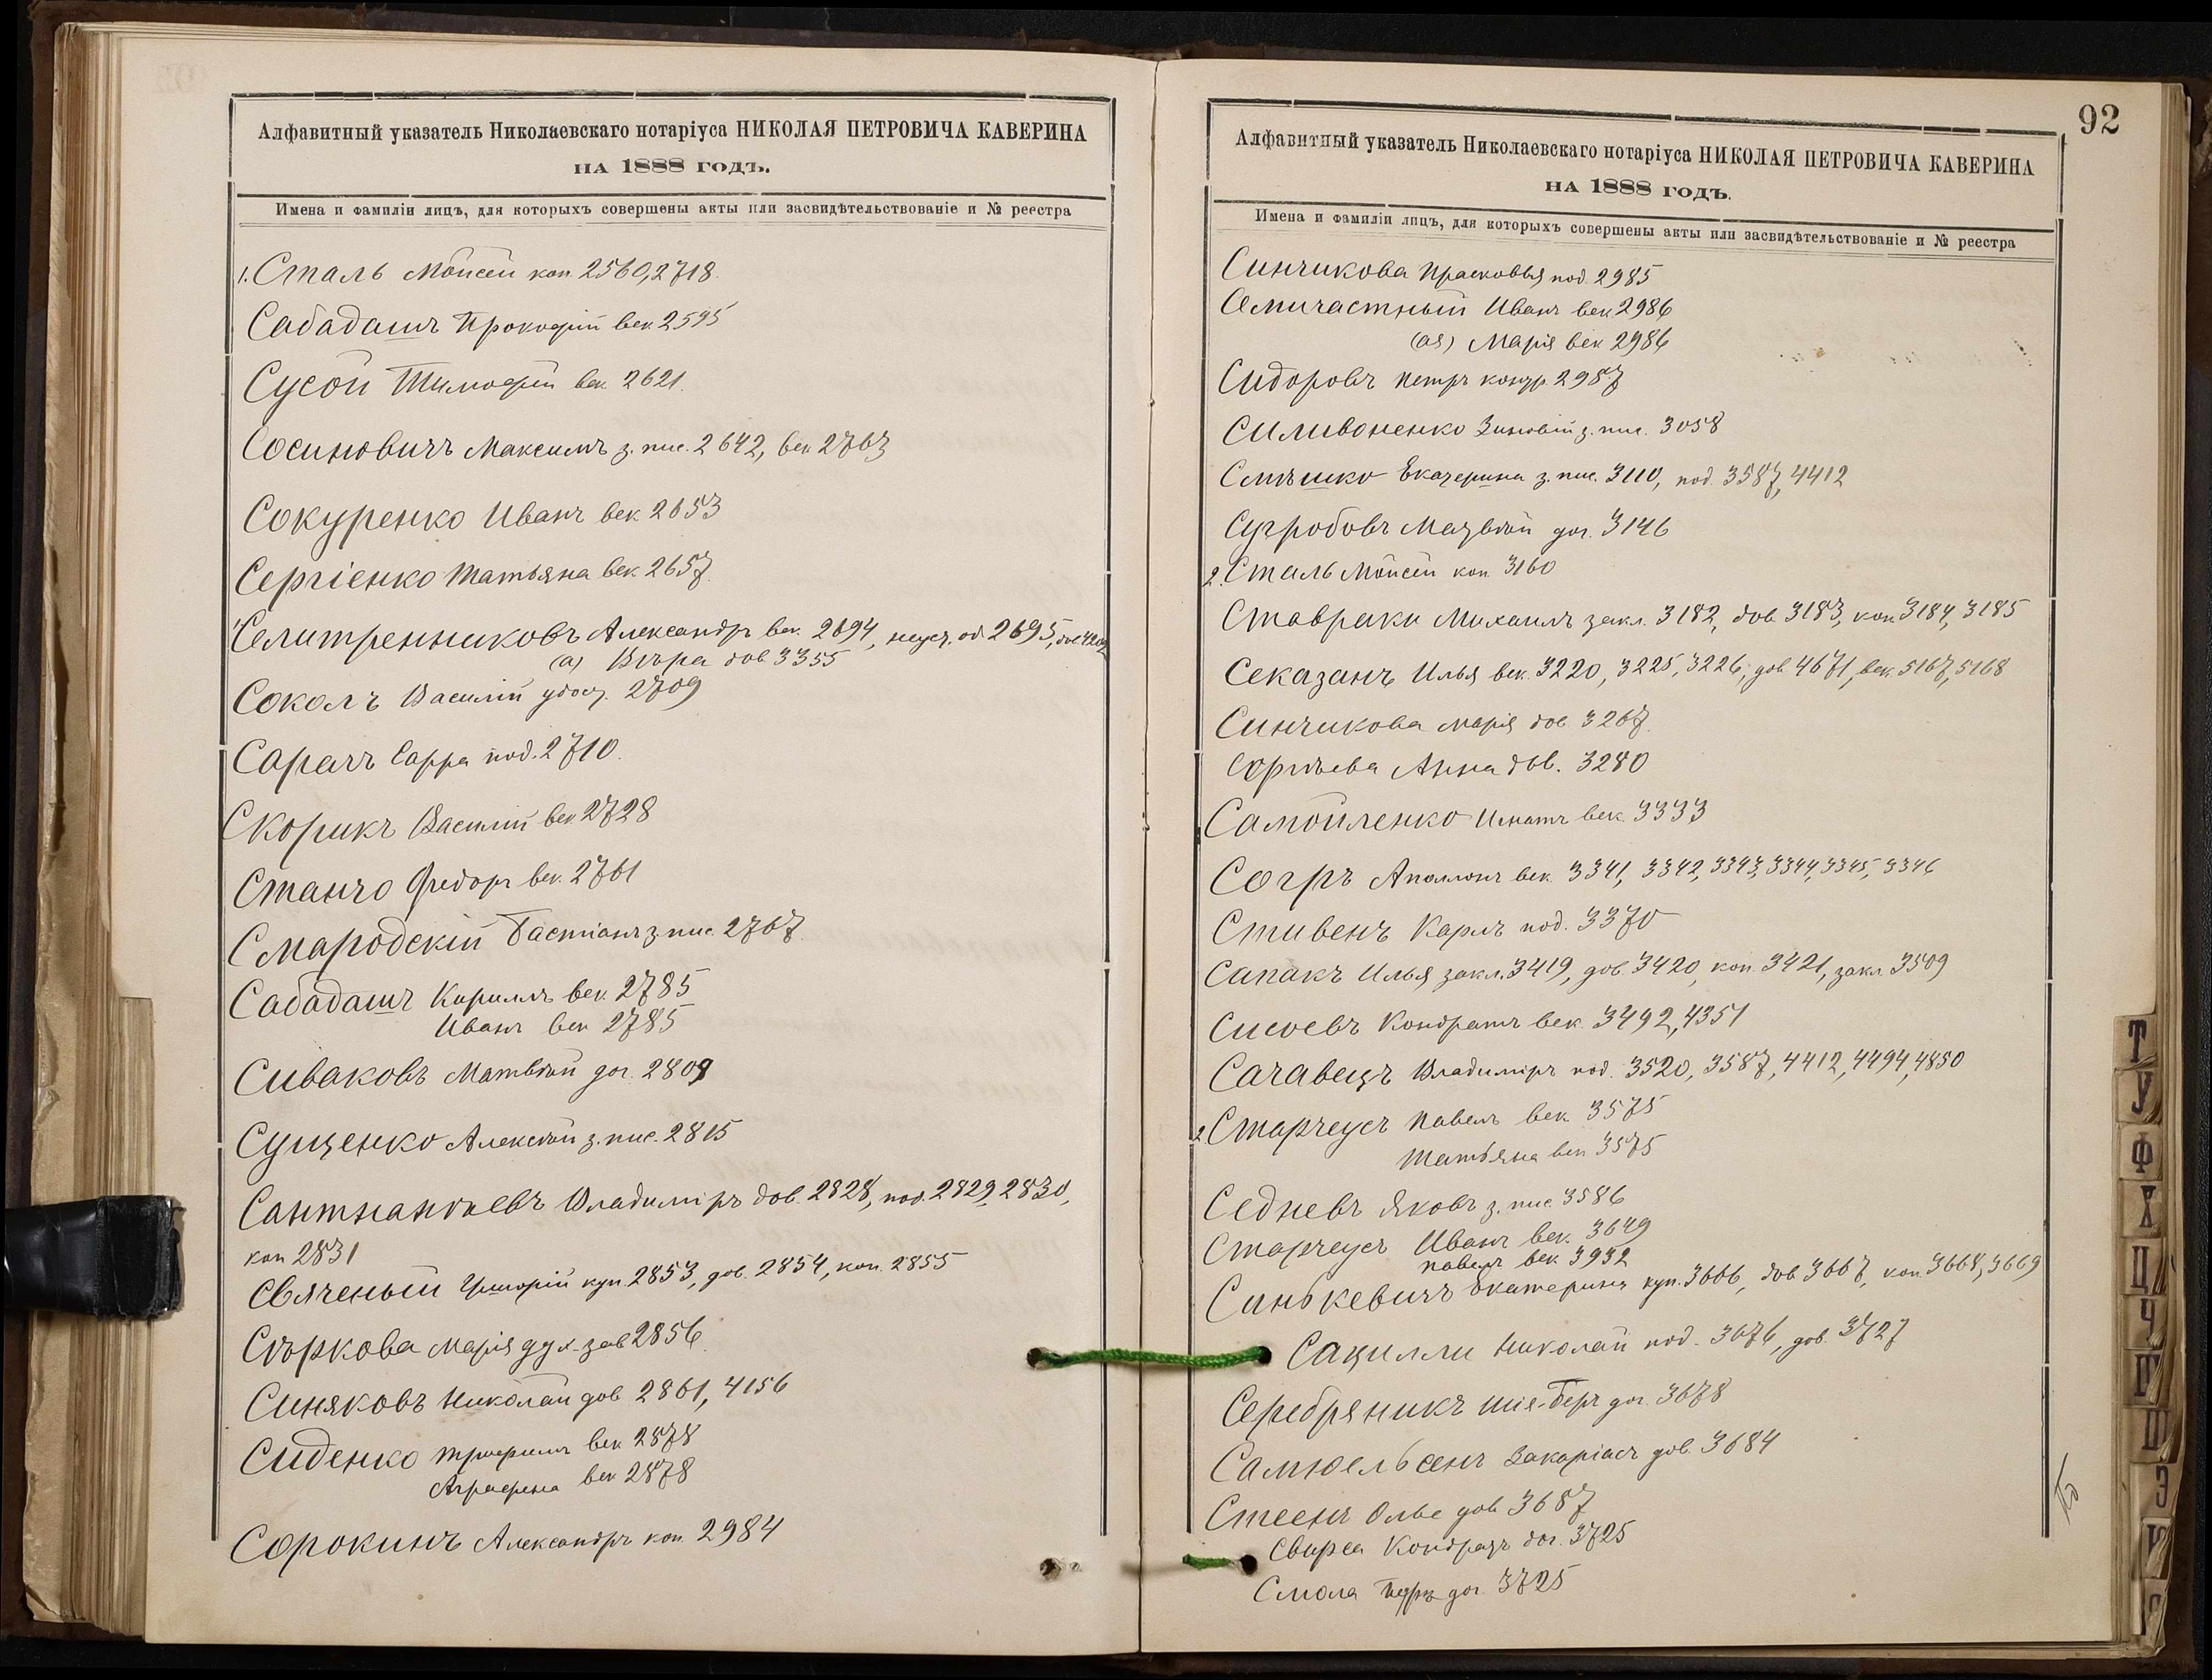 Алфавитный указатель Николаевскаго нотаріуса НИКОЛАЯ ПЕТРОВИЧА КАВЕРИНА
НА 1888 ГОДЪ.
Имена и фамиліи лицъ, для которыхъ совершены акты или засвидѣтельствованіе и № реестра
1. Сталь Мойсей коп 2560, 2718.
Сабадашъ Прокофій век 2595
Сусой Тимофей век. 2621.
Сосиновичъ Максимъ з. пис. 2642, век 2763
Сокуренко Иванъ век. 2653
Сергіенко Татьяна век. 2657.
Селитренниковъ Александръ век. 2694, неуст. об. 2695,
(а) Вѣра дов 3355
Соколъ Василій удост. 2709
Сарачъ Сарра под. 2710.
Скорикъ Василій век 2728
Станчо Федоръ век. 2761
Смародскій Бастіанъ з. пис. 2767.
Сабадашъ Кириллъ век. 2785
Иванъ век 2785
Сиваковъ Матвѣй дог. 2809
Сущенко Алексѣй з. пис. 2815
Владиміръ дов. 2828, под. 2829, 2830,
коп 2831
Свяченый Григорій куп 2853, дов. 2854, коп. 2855
Сѣркова Марія дух. зав 2856.
Синяковъ Николай дов 2861, 4156
Сиденко Трофимъ век 2878
Аграфена век 2878
Сорокинъ Александръ коп. 2984
92
Алфавитный указатель Николаевскаго нотаріуса НИКОЛАЯ ПЕТРОВИЧА КАВЕРИНА
НА 1888 ГОДЪ.
Имена и фамиліи лицъ, для которыхъ совершены акты или засвидѣтельствованіе и № реестра
Синчикова Прасковья под. 2985
Семичастный Иванъ век 2986
(ая) Марія век 2986
Сидоровъ Петръ 2987
Силивоненко Зиновій з. пис. 3058
Смѣшко Екатерина з. пис. 3110, под. 3587, 4412
Сугробовъ Матвѣй дог. 3146
2. Сталь Мойсей коп 3160
Ставраки Михаилъ закл. 3182, дов. 3183, коп 3184, 3185
Секазанъ Илья век. 3220, 3225, 3226, дов 4671, век. 5167, 5168
Синчикова Марія дов. 3267.
Анна дов. 3280
Самойленко Игнатъ век. 3333
Согръ Аполлонъ век. 3341, 3342, 3343, 3344, 3345, 3346
Стивенъ Карлъ под. 3370
Сапакъ Илья закл. 3419, дов. 3420, коп. 3421, закл 3509
Сисоевъ Кондратъ век. 3492, 4351
Сачавецъ Владиміръ под. 3520, 3587, 4412, 4494, 4850
2. Старчеусъ Павелъ век. 3575
Татьяна век 3575
Седневъ Яковъ з. пис 3586
Старчеусъ Иванъ век. 3649
Павелъ век 3932
Синькевичъ Екатерина куп. 3666, дов 3667, коп 3668, 3669
Сацилли Николай под. 3676, дов. 3727
Серебряникъ Шія-Беръ дог. 3678
Самюельсенъ Закаріасъ дов. 3684
Стеенъ Ольве дов. 3687
Свирса Кондратъ дог. 3725
Смола Петръ дог. 3725
Т
У
Ф
Х
Ц
Ч
Ш
Щ
Э